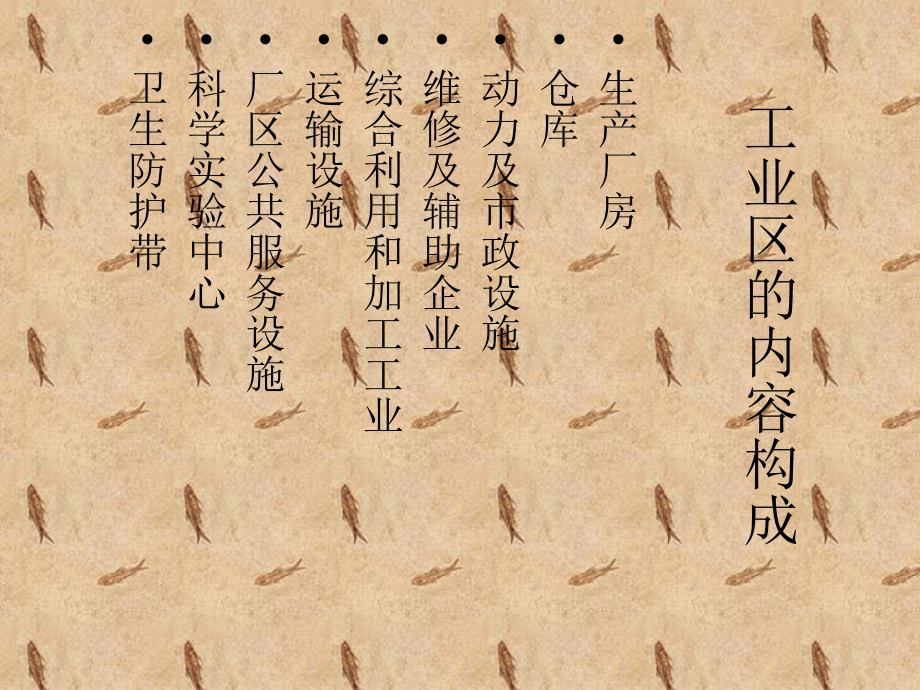 工业区的内容构成
• 生产厂房
• 仓库
• 动力及市政设施
• 维修及辅助企业
• 综合利用和加工工业
• 运输设施
• 厂区公共服务设施
• 科学实验中心
• 卫生防护带